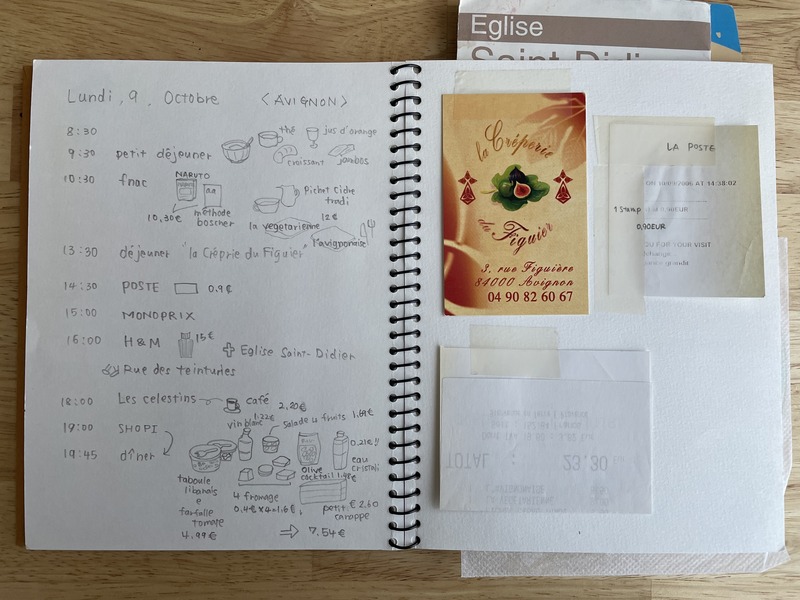 Eglise
Saint-Didier
Lundi, 9, Octobre <AVIGNON>
8:30
thé jus d'orange
9:30 petit déjeuner
croissant jambos
10:30 fnac
NARUTO
10,30€ méthode
boscher
Pichet Cidre
tradi
12€
la vegetarienne
l'avignonaise
13:30 déjeuner "la Crêprie du Figuier"
14:30 POSTE 0.9€
15:00 MONOPRIX
16:00 H&M 15€ Eglise Saint-Didier
Rue des teinturies
18:00 Les celestins café 2,20€
19:00 SHOPI
vin blanc 1.22€
salade 4 fruits 1.69€
19:45 dîner
0.21€!!
eau
cristali
olive
cocktail 1.98€
taboule
libanais
e
farfalle
tomate
4.99€
4 fromage
0.4€×4=1.6€
petit € 2.60
carappe
⇒ 7.54€
la Crêperie
du Figuier
3, rue Figuière
84000 Avignon
04 90 82 60 67
LA POSTE
AT 14:38:02
1 Stamp
0,90EUR
FOR YOUR VISIT
TOTAL : 23.30